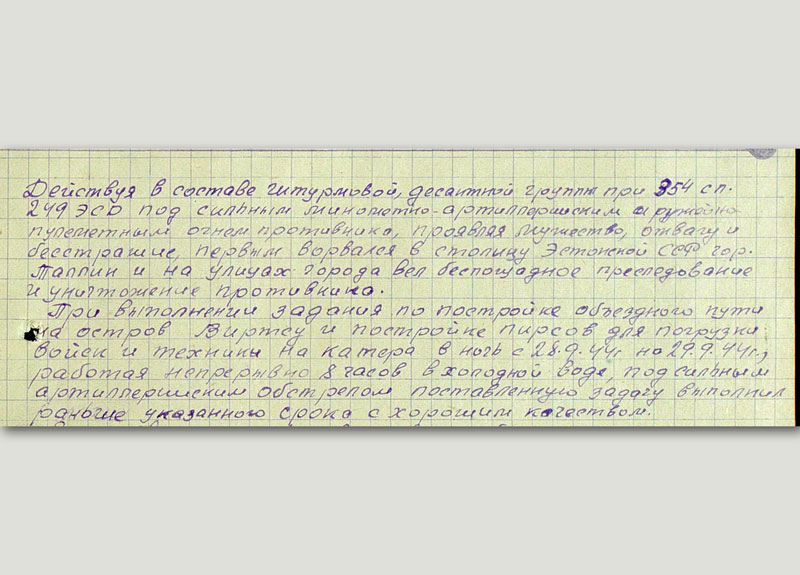 Действуя в составе штурмовой, десантной группы при 354 сп.
249 ЭСД под сильным минометно-артиллерийским и ружейно
пулеметным огнем противника, проявляя мужество, отвагу и
бесстрашие, первым ворвался в столицу Эстонской ССР гор.
Таллин и на улицах города вел беспощадное преследование
и уничтожение противника.
При выполнении задания по постройке объездного пути
на остров Виртсу и постройке пирсов для погрузки
войск и техники на катера в ночь с 28.9.44г на 29.9.44г.,
работая непрерывно 8 часов в холодной воде, под сильным
артиллерийским обстрелом поставленную задачу выполнил
раньше указанного срока с хорошим качеством.